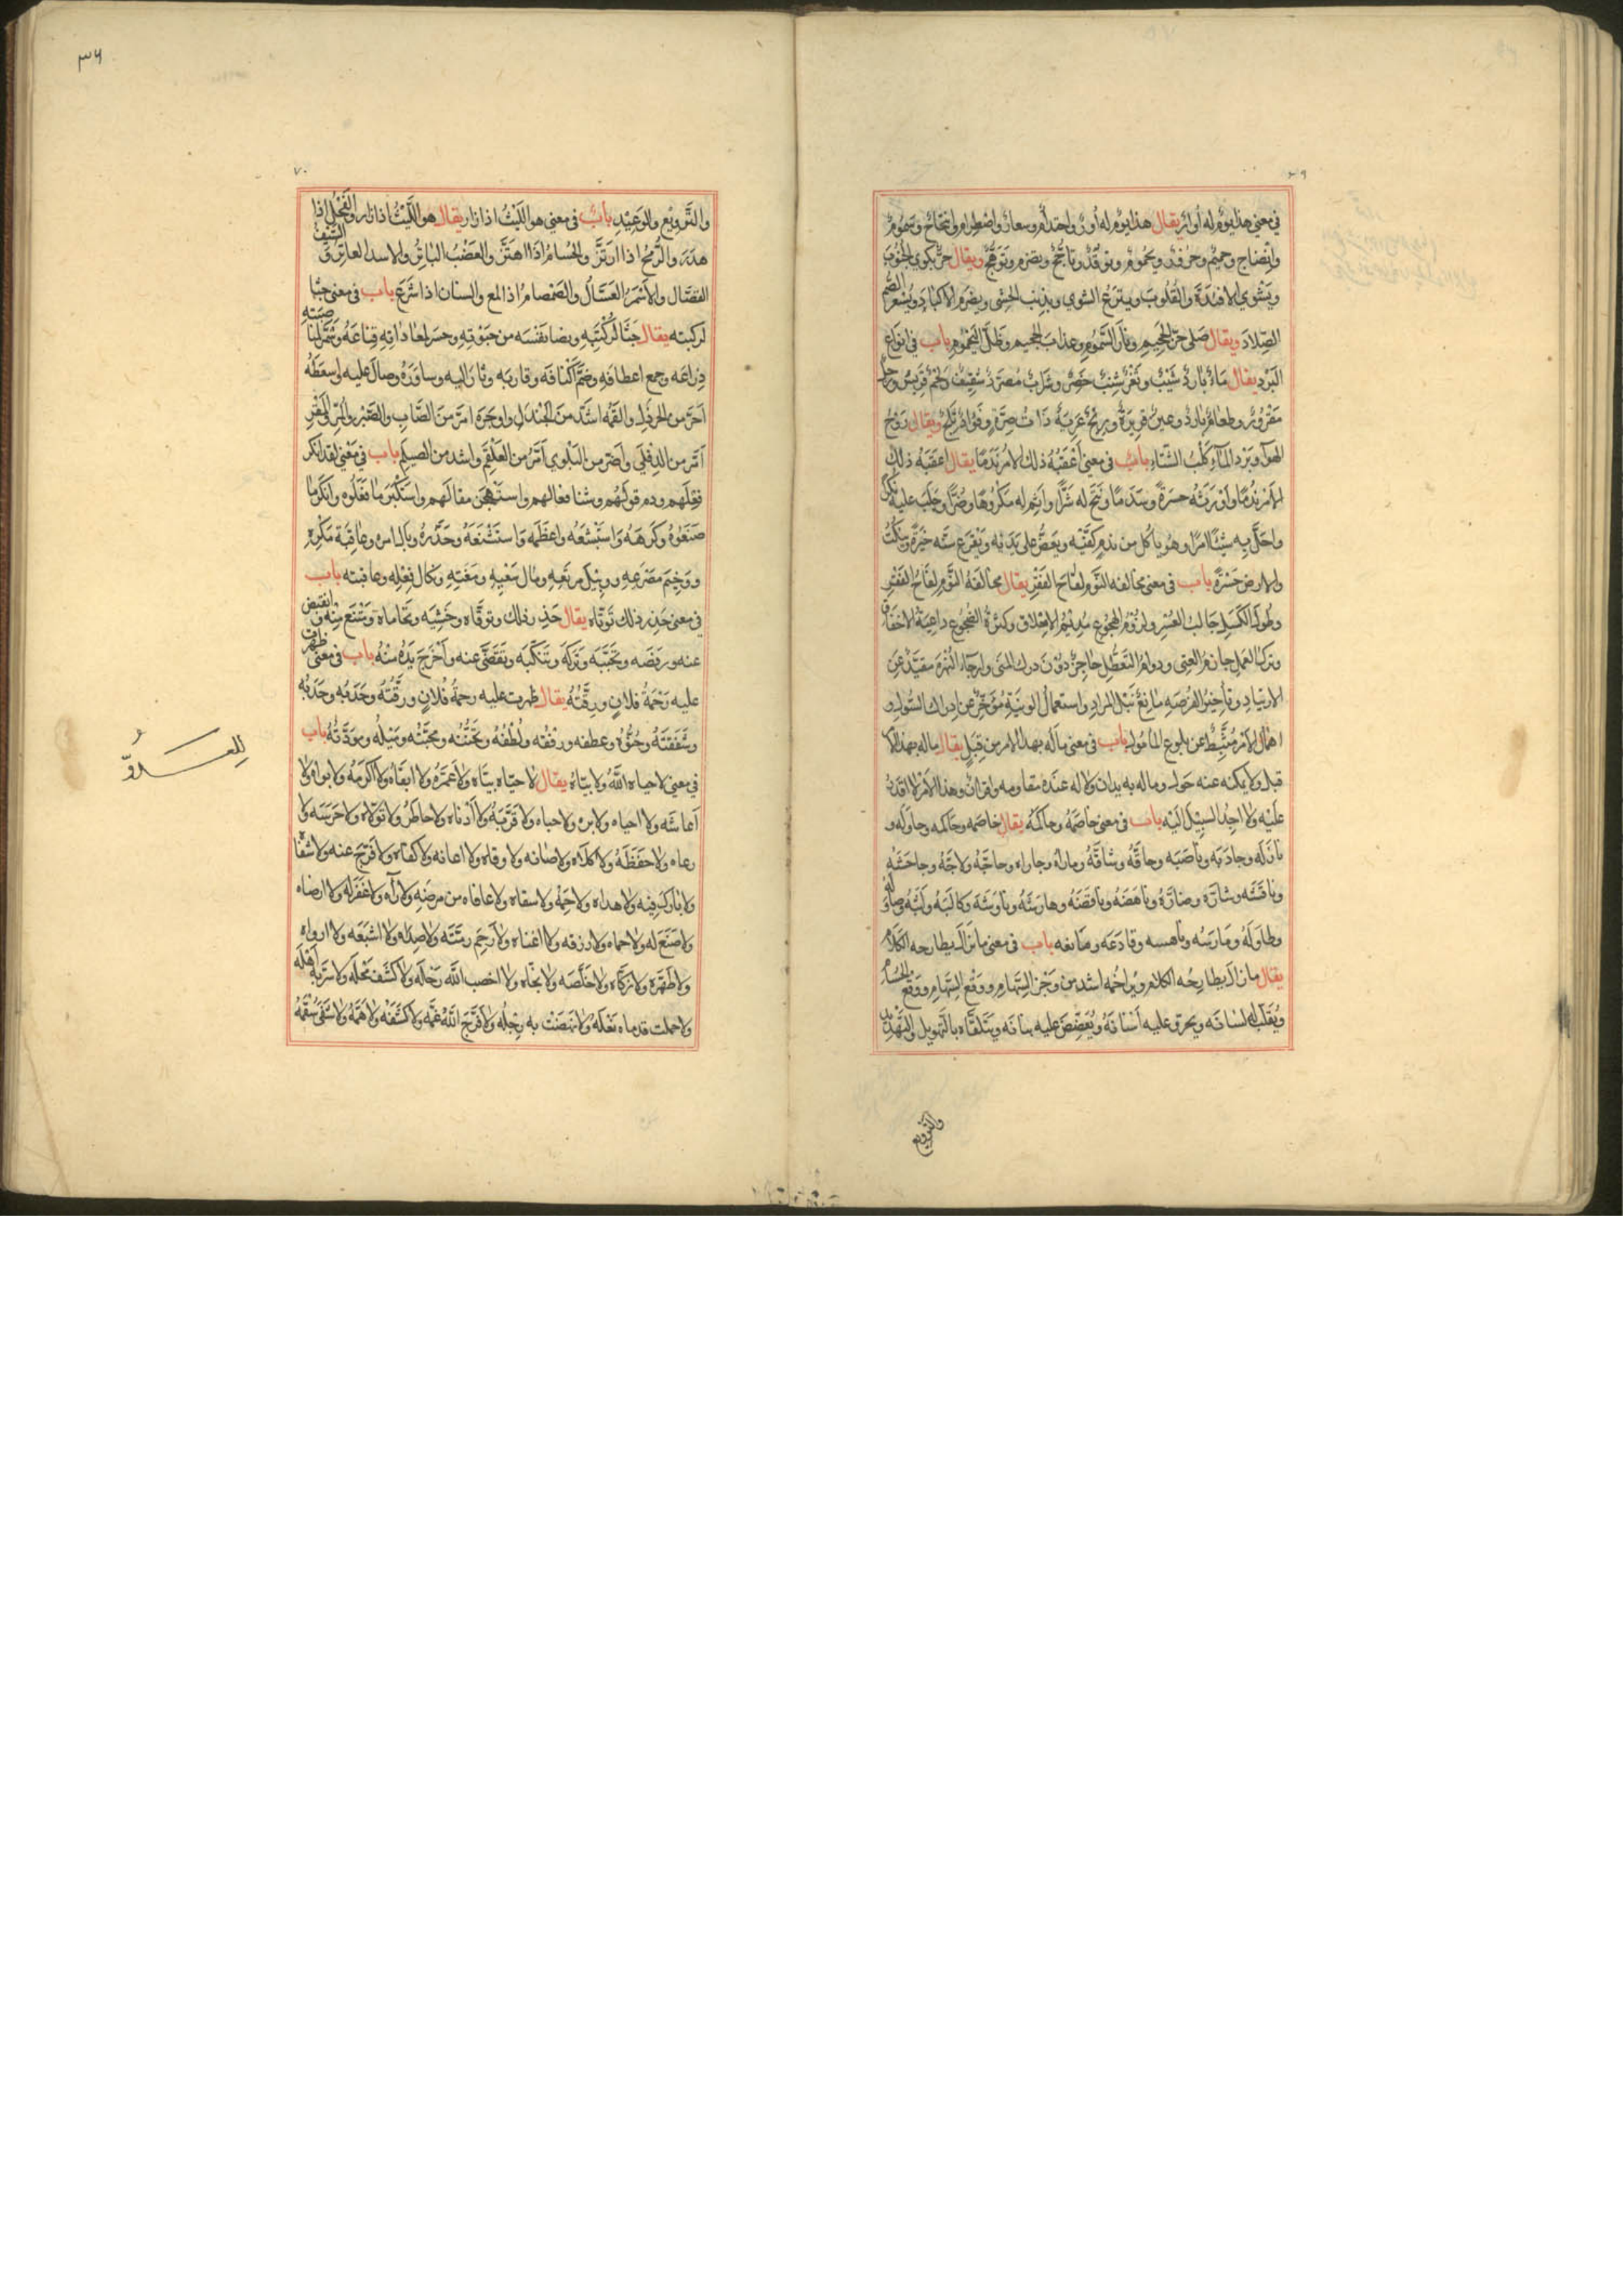 ٦٩
في معنى هذا يوم له أوار يقال هذا يوم له أوار واحتدام وسعار واضطرام وسموم
وانضاج وحميم ويحموم وتوقد وتأجج وتضرم وتوهج ويقال حر يكوي الجنوب
ويشوي الافئدة والقلوب وينزع الشوى ويذيب الحشى ويضرم الاكباد ويسعر الصم
الصلاد ويقال صلى حر الجحيم ونار السموم وعذاب الجحيم وظل اليحموم باب في انواع
البرد يقال ماء بارد وثغر شنب خصر وشراب مصرد ولحم قريس ورجل
مقرور وطعام بارد وعين قريرة وريح عرية ذات صرة ويقال روح
الهواء وبرد الماء كلب الشتاء باب في معنى أعقبه ذلك الامر ندما يقال اعقبه ذلك
الامر ندما واورثه حسرة وسدما ونتج له شرا واثمر له مكروها وضرا وجلب عليه
واحل به شيئا امرا وهو يأكل من ندم كفيه ويعض على يديه ويقرع سنه
والارض حسرة باب في معنى محالفه النوم لقاح الفقر يقال محالفة النوم لقاح الفقر
وطول الكسل جالب العسر ولزوم الهجوع مديم الاملاق وكثرة الضجوع داعية الاخفاق
وترك العمل ودوام التعطل حاجز دون درك المنى وارجاء النهزة مقيد عن
الارتياد وتأخير الفرصة مانع نيل المراد واستعمال الونية مؤخر عن ادراك السول و
اهمال الامر مثبط عن بلوغ المأمول باب في معنى ماله بهذا الامر من قبل يقال ماله بهذا الامر
قبل ولا يمكنه عنه حول وماله به يدان ولا له عنده مقاومه واقران وهذا الامر لا اقدر
عليه ولا اجد السبيل اليه باب في معنى خاصمه وحاكمه يقال خاصمه وحاكمه وجادله و
نازله وجاذبه وناصبه وحاقه وشاقه وماراه وجاراه وحاجه ولاجه وجاحشه
وناقشه وشاره وضاره وناهضه وناقضه وهارشه وناوشه وكالبه
وطاوله ومارسه وقادعه ومانعه باب في معنى مازال يطارحه الكلام
يقال مازال يطارحه الكلام ويراجمه اشد من وخز السهام ووقع السهام ووقع الحسام
ويقلب له لسانه ويحرق عليه أسنانه ويغضض عليه بنانه ويتلقاه بالتهويل والتهديد
والترويع
٣٦
٧٠
والترويع والوعيد باب في معنى هو الليث اذا زار يقال هو الليث اذا زار والفحل اذا
هدر والرمح اذا ارتز والحسام اذا اهتز والعضب الباتر والاسد العاتق والسيف
القصال والاسمر العسال والصمصام اذا لمع والسنان اذا شرع باب في معنى جثا
لركبته يقال جثا لركبتيه ونضا نفسه من حبوته وحسر لمعاداته قناعه وشمر لمناصبته
ذراعه وجمع اعطافه وضم اكنافه وقاربه وثار اليه وساوره وصال عليه واسعطه
أحر من الخردل والقمه اشد من الجندل واوجره امر من الصاب والصبر والمر والمقر
أمر من الدفلى واضر من البلوى أمر من العلقم واشد من الصيلم باب في معنى لقد انكر
فعلهم وذم قولهم وشنا فعالهم واستهجن مقالهم واستكبر ما فعلوه وانكر ما
صنعوه وكرهه واستبشعه واعظمه واستشنعه وحذره وبال امره وعاقبة مكره
ووخيم مصرعه ووبيل مرتعه ومآل سعيه ومغبته ونكال فعله وعاقبته باب
في معنى حذر ذلك توقاه يقال حذر ذلك وتوقاه وخشيه وتحاماه وتمنع منه وانقبض
عنه ورفضه وتجنبه وتركه وتنكبه وتقصى عنه واخرج يده منه باب في معنى ظهرت
عليه رحمة فلان ورقته يقال ظهرت عليه رحمة فلان ورقته وحدبه
وشفقته وحنوه وعطفه ورفقه ولطفه وتحننه ومحبته وميله ومودته باب
في معنى لا حياه الله ولا بياه يقال لا حياه ولا بياه ولا عمره ولا ابقاه ولا اكرمه ولا بواه ولا
أعاشه ولا احياه ولا بره ولا حباه ولا قربه ولا أدناه ولا حاطه ولا تولاه ولا حرسه ولا
رعاه ولا حفظه ولا كلاه ولا صانه ولا وقاه ولا اعانه ولا كفاه ولا فرج عنه ولا شفاه
ولا بارك فيه ولا هداه ولا رحمه ولا سقاه ولا عافاه من مرضه ولا غفر له ولا ارضاه
ولا صنع له ولا حماه ولا رزقه ولا اغناه ولا رحم رمته ولا صداه ولا اشبعه ولا ارواه
ولا طهره ولا زكاه ولا خلصه ولا نجاه ولا اخصب الله رحله ولا كشف محله ولا سر به أهله
ولا حملت قدماه نعله ولا نهضت به رجله ولا فرج الله غمه ولا كشف همه ولا شفى سقمه
للعسـدوّ